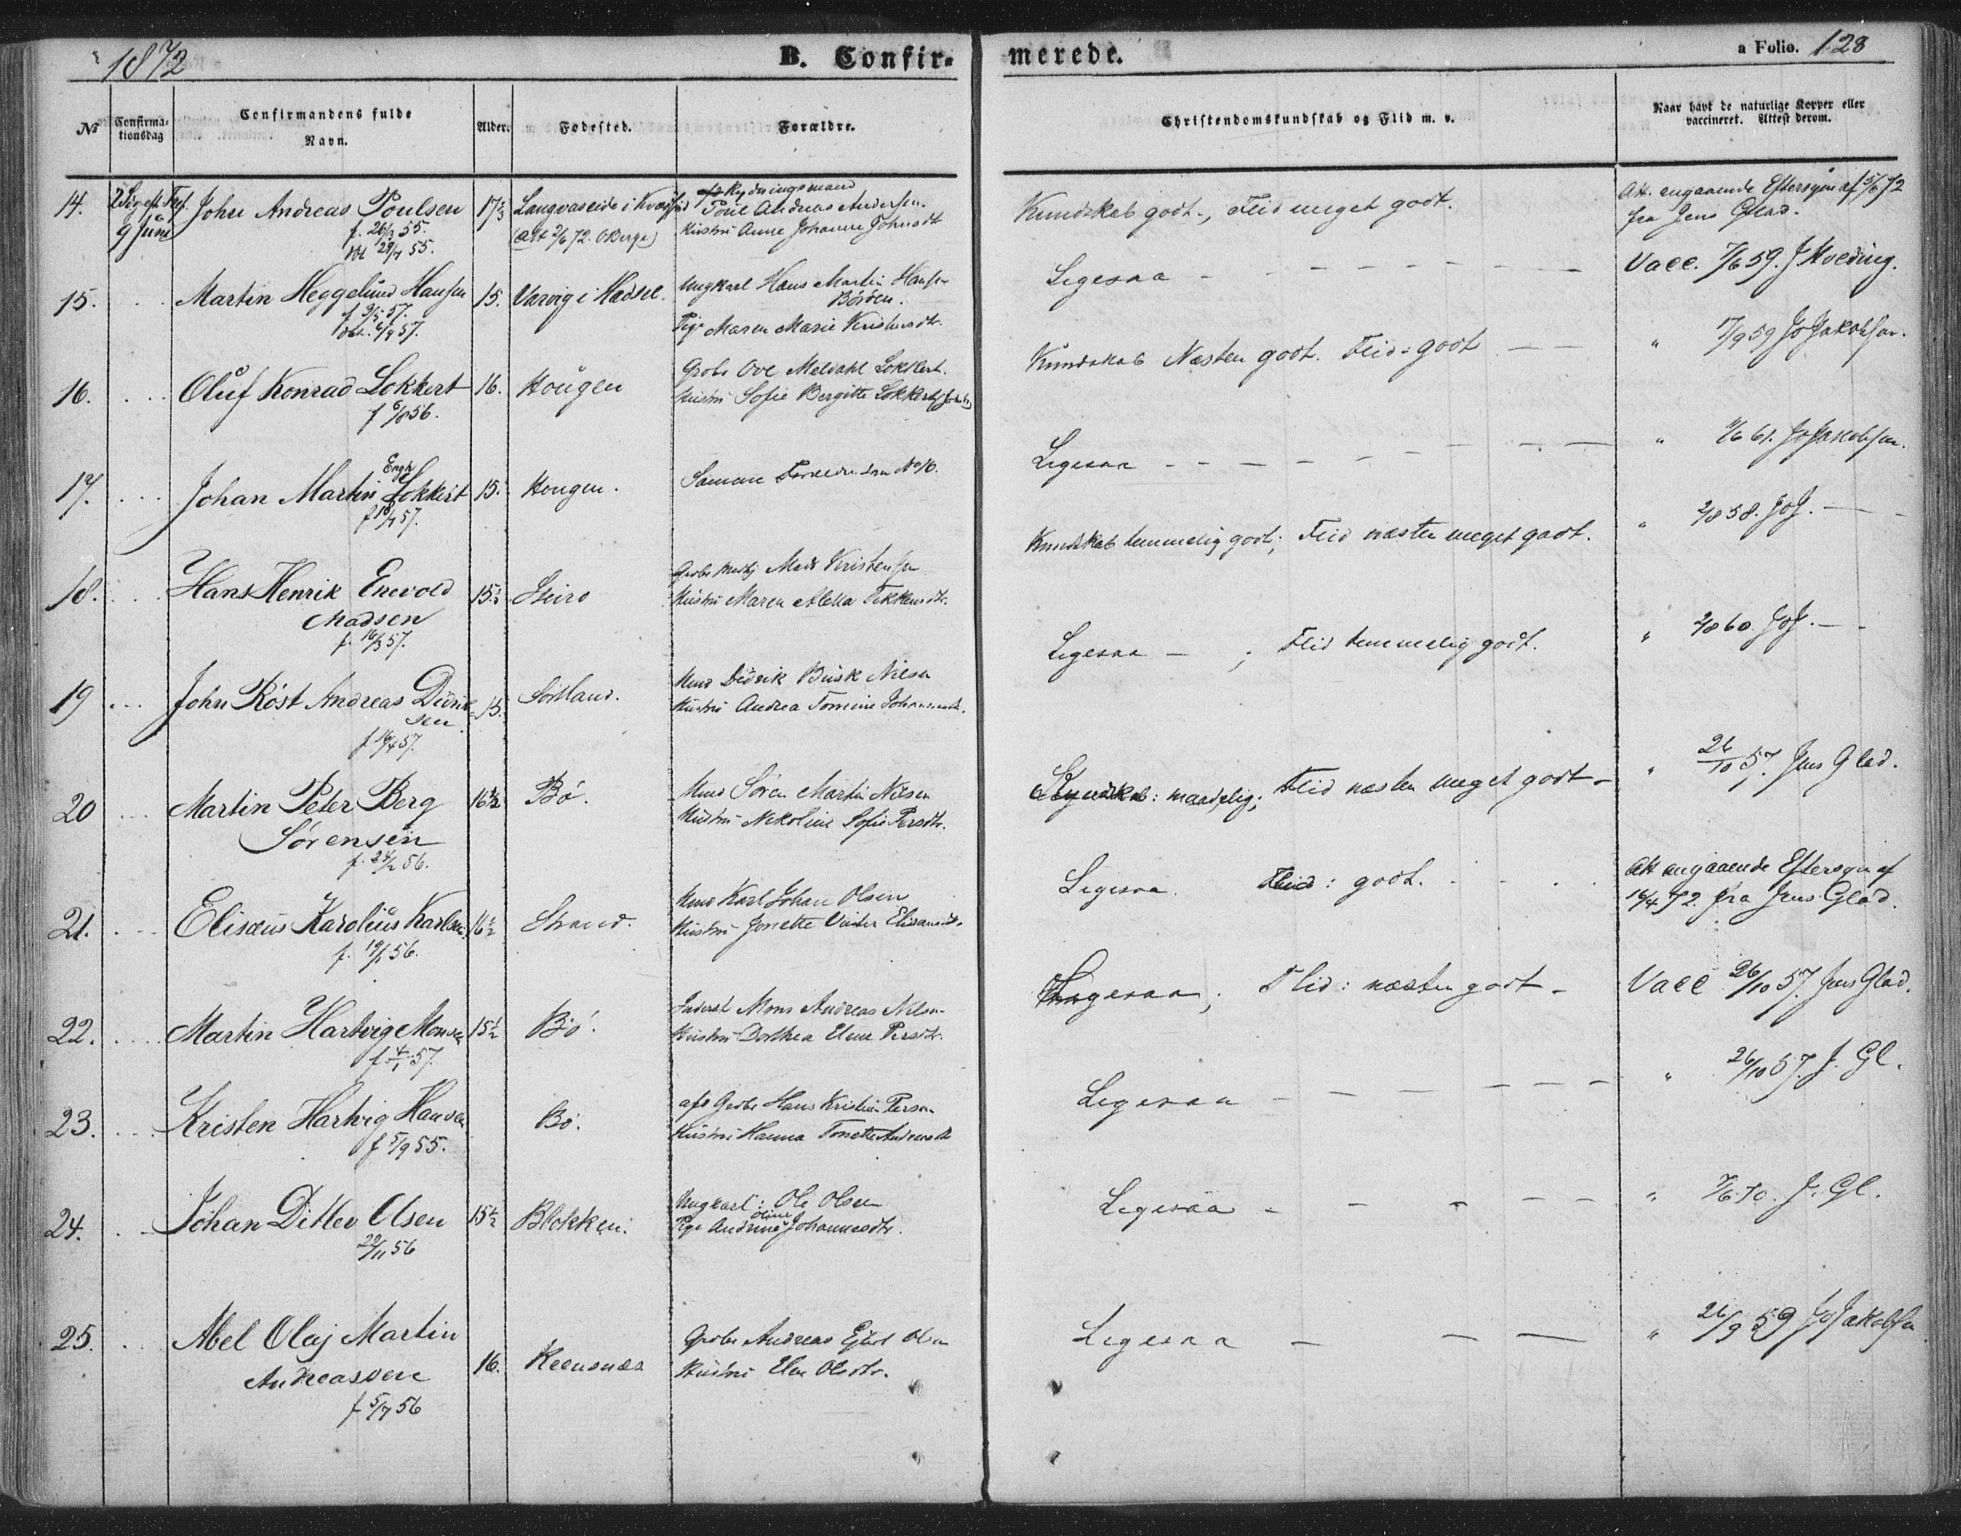 1872
B. Confirmerede.
a Folio. 128
No
Confirmationsdag
Confirmandens fulde Navn.
Alder.
Fødested.
Forældre.
Christendomskundskab og Flid m. v.
Naar havt de naturlige Kopper eller vaccineret. Attest derom.
14.
9 Juni
John Andreas Poulsen
f. 26/3 55.
17 1/3
Langvaseide i Kvædfjord
(Att 2/6 72. O Berge)
Rydningsmand
Poul Andreas Andersen.
Hustru Anne Johanne Johnsdt
Kundskab godt., Flid meget godt.
Att. angaaende Eftersyn af 5/6 72
fra Jens Glad.
15.
Martin Heggelund Hansen
f 3/5 57.
døbt. 6/9 57.
15.
Varvig i Hadsel.
Ungkarl Hans Martin Hansen
Böröen.
Pige Maren Marie Kristensdtr.
Ligesaa - - - - - -
Vacc. 7/6 59. J Hveding.
16.
Oluf Konrad Lokkert
f 6/8 56.
16.
Hougen
Grbr Ove Meldahl Lokkert.
Hustru Sofie Bergitte Lokkert
Kundskab Næsten godt. Flid: godt - -
" 17/9 59 Jo Jakobsen.
17.
Johan Martin Engh Lokkert
f 18/7 57.
15.
Hougen.
Samme Forældre som No 16.
Ligesaa - - - - - - - -
" 9/6 61. Jo Jakobsen.
18.
Hans Henrik Enevold
Madsen
f. 16/3 57.
15 1/3
Steiro
Mads Kristensen
Hustru Maren Aletta Fikkensdtr.
Kundskab temmelig godt; Flid næsten meget godt.
" 2/8 58. JoJ. - -
19
John Röst Andreas Didrik
sen
f 16/4 57.
15.
Sortland.
Mnd Didrik Busk Nilsen
Hustru Andrea Tomine Johannesdt.
Ligesaa - ; Flid temmelig godt.
" 2/8 60. JoJ. - -
20
Martin Peter Berg
Sørensen
f. 24/2 56.
16 1/2
Bö.
Mnd Sören Martin Nilsen
Hustru Nikoline Sofie Persdtr.
Kundskab: maadelig; Flid næsten meget godt -
" 26/10 57. Jens Glad.
21.
Elisæus Karolius Karlsen
f. 19/1 56.
16 1/2
Strand.
Mnd Karl Johan Olsen
Hustru Jonette Elisæusdtr.
Ligesaa. Flid: godt. - - .
Att angaaende Eftersyn af
16/4 72 fra Jens Glad.
22.
Martin Hartvig Monsen
f. 4/1 57.
15 1/2
Bö.
Inderst Mons Andreas Nilsen
Hustru Dorthea Elene Persdtr.
Ligesaa; Flid: næsten godt -
Vacc 26/10 57. Jens Glad.
23.
Kristen Hartvig Hansen
f 5/9 55.
Bö.
afd Grbr Hans Kristian Persen
Hustru Hanna Tonette Andersdt
Ligesaa - - - - - -
" 26/10 57. J. Gl.
24.
Johan Ditlev Olsen
29/11 56
15 1/2
Blokken.
Ungkarl: Ole Olsen
Pige Andrine Oline Johannesdtr.
Ligesaa - - - - -
" 7/6 70. J. Gl.
25.
Abel Olaj Martin
Andreassen
f 5/7 56
16.
Reensnæs
Grbr Andreas Ejlert Olsen
Hustru Elen Olsdtr.
Ligesaa - - -
" 26/9 59 Jo Jakobsen